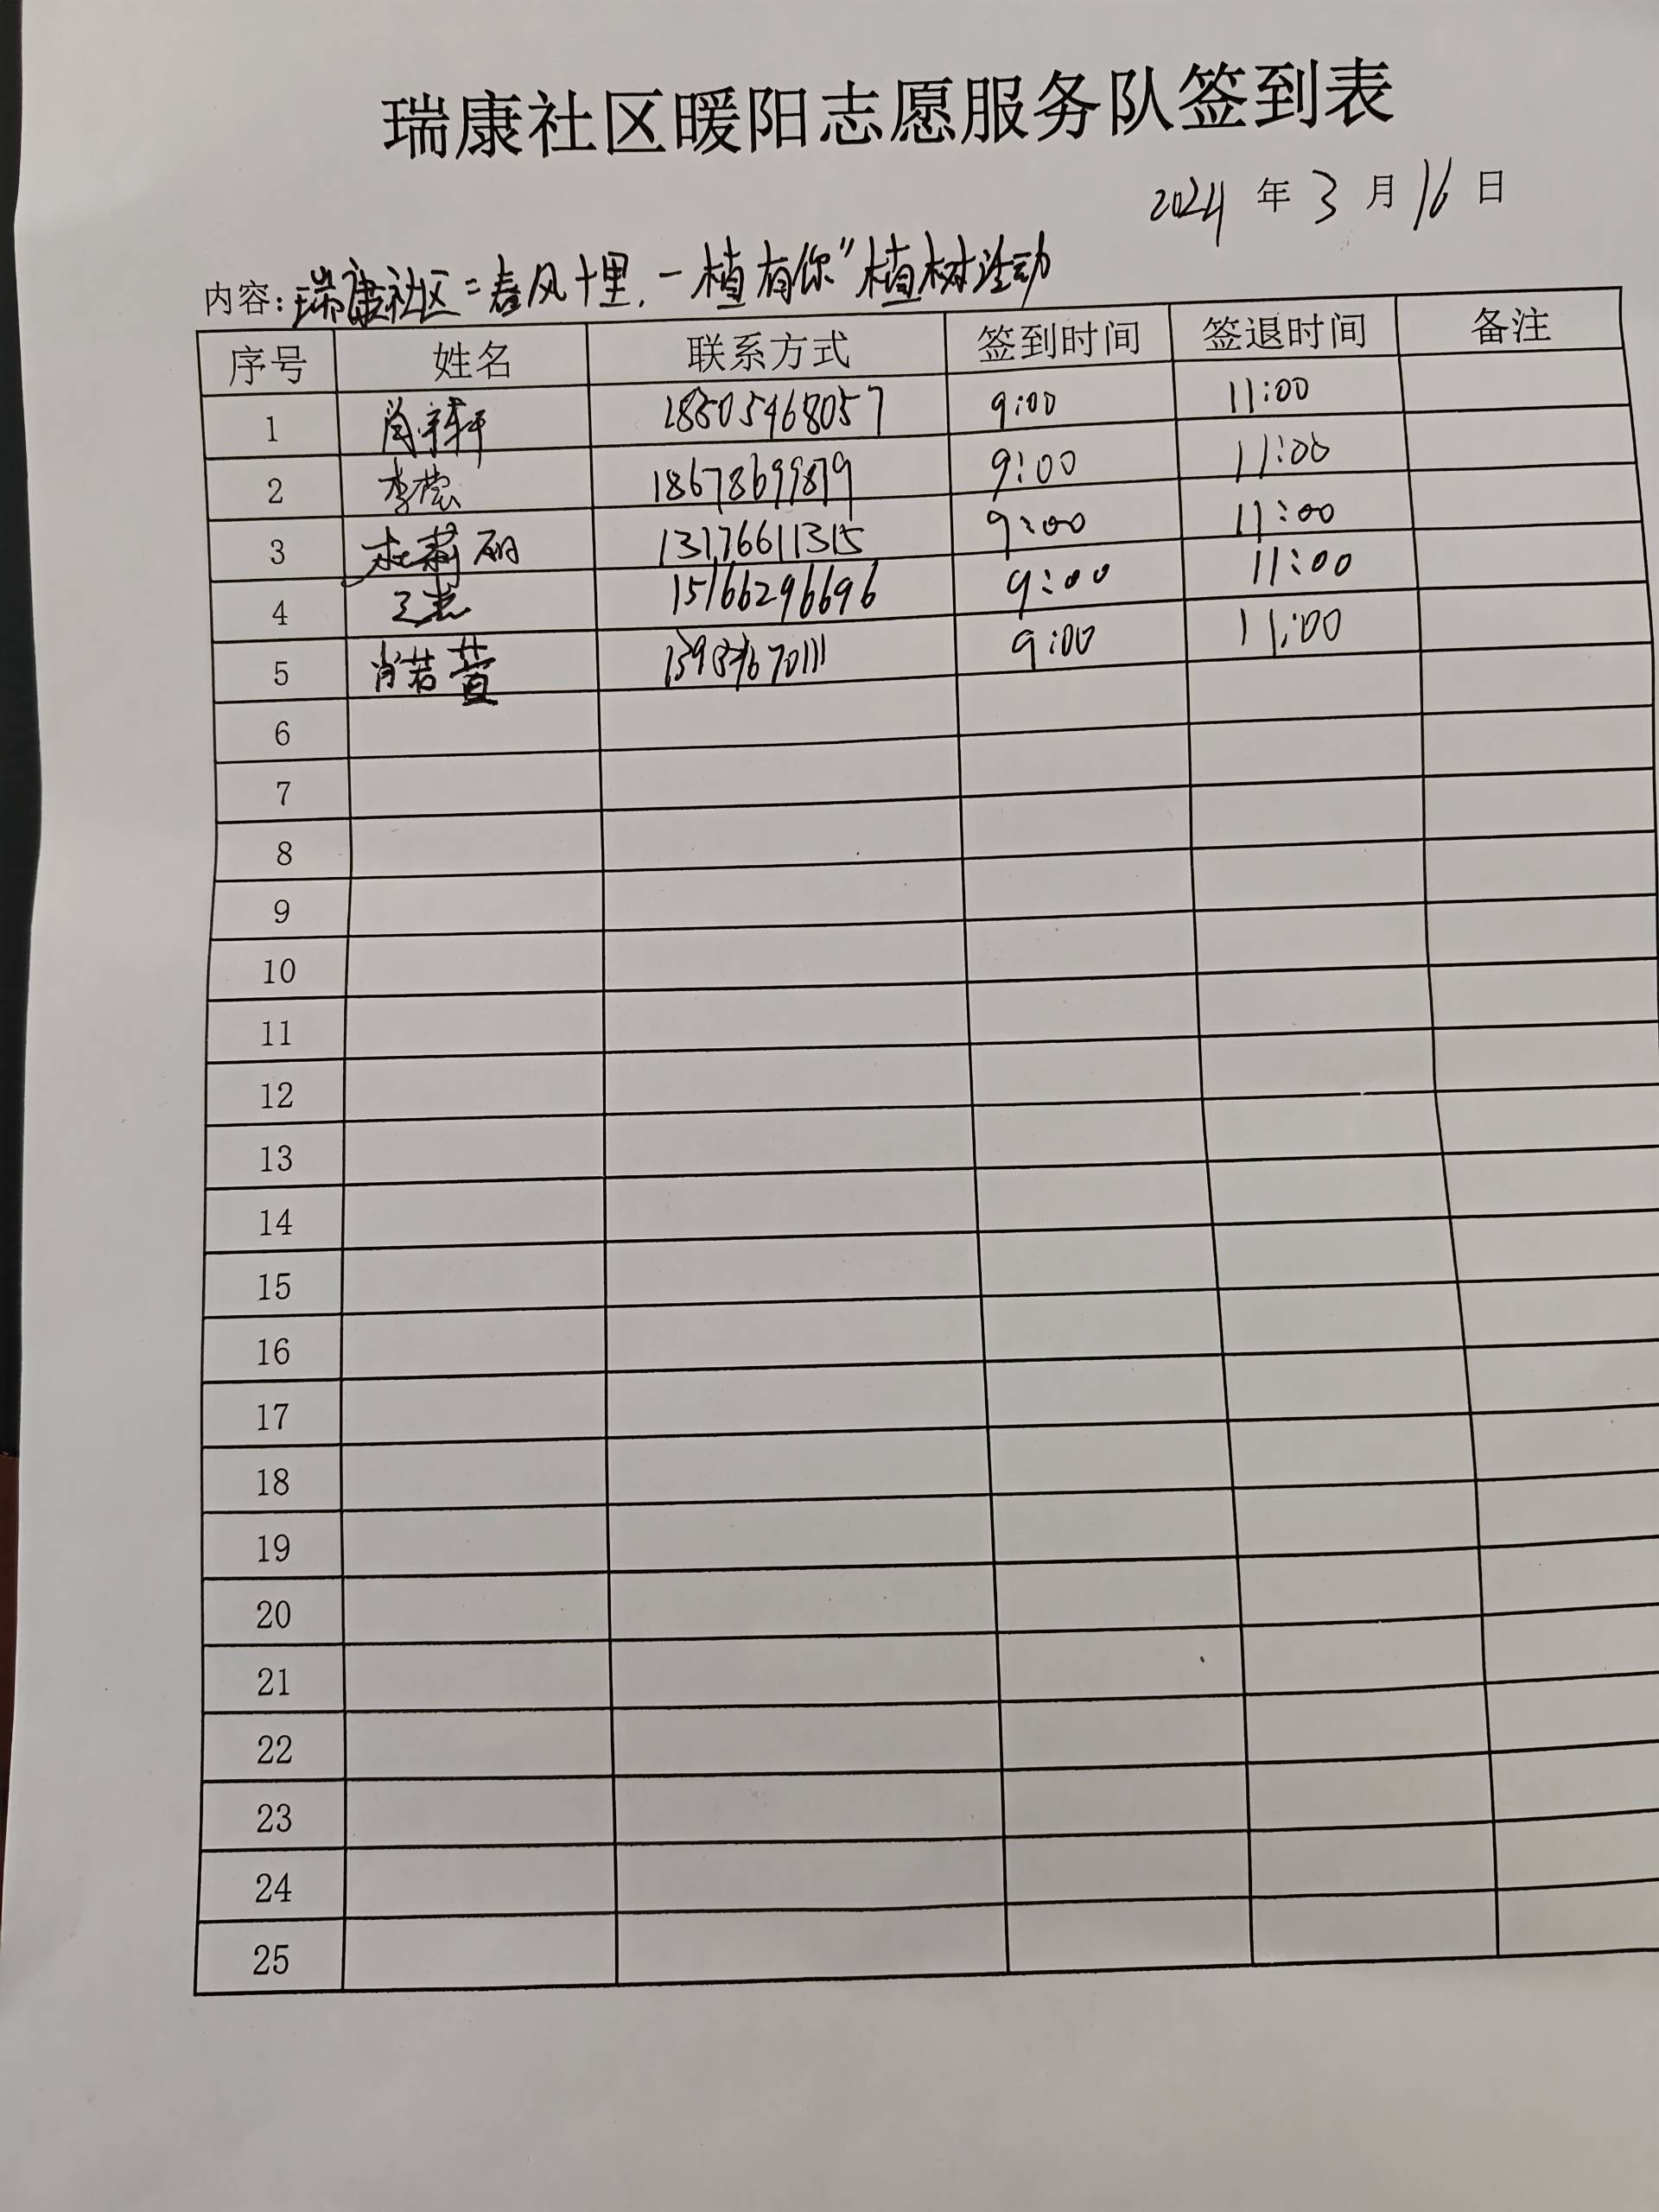 瑞康社区暖阳志愿服务队签到表
2024 年 3 月 16 日
内容:瑞康社区“春风十里,一植有你”植树活动
序号 姓名 联系方式 签到时间 签退时间 备注
1 18505468057 9:00 11:00
2 18678699879 9:00 11:00
3 杜莉丽 13176611315 9:00 11:00
4 15166296696 9:00 11:00
5 肖若萱 9:00 11:00
6
7
8
9
10
11
12
13
14
15
16
17
18
19
20
21
22
23
24
25